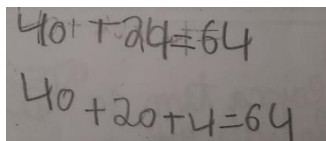 40 + 24 = 64
40 + 20 + 4 = 64